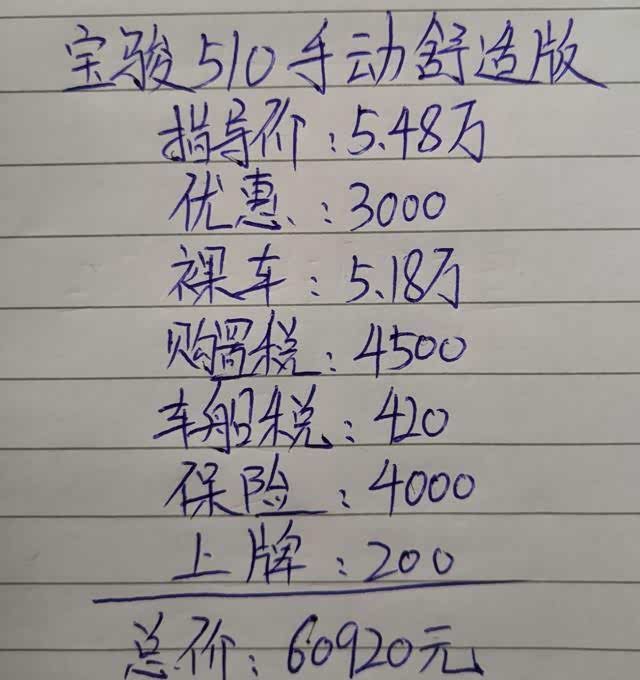 宝骏510手动舒适版
指导价：5.48万
优惠：3000
裸车：5.18万
购置税：4500
车船税：420
保险：4000
上牌：200
总价：60920元